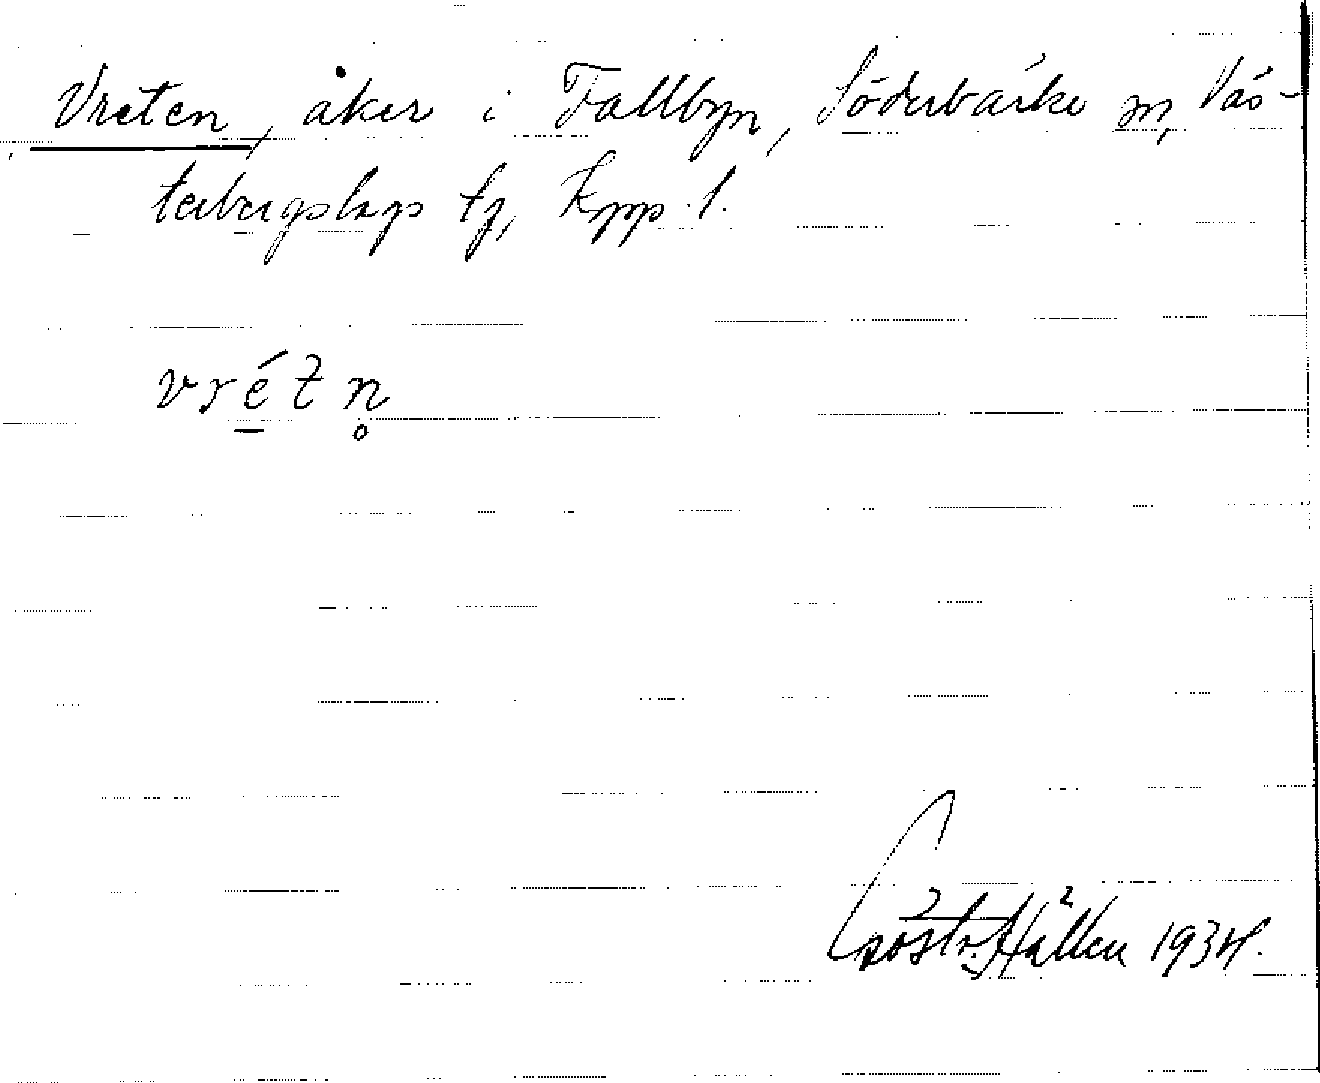 Vreten, åker i Fallbyn, Söderbärke sn, Väs-
terbergslags tg, Kpp. l.
vrétn̥
Hällen 1934.